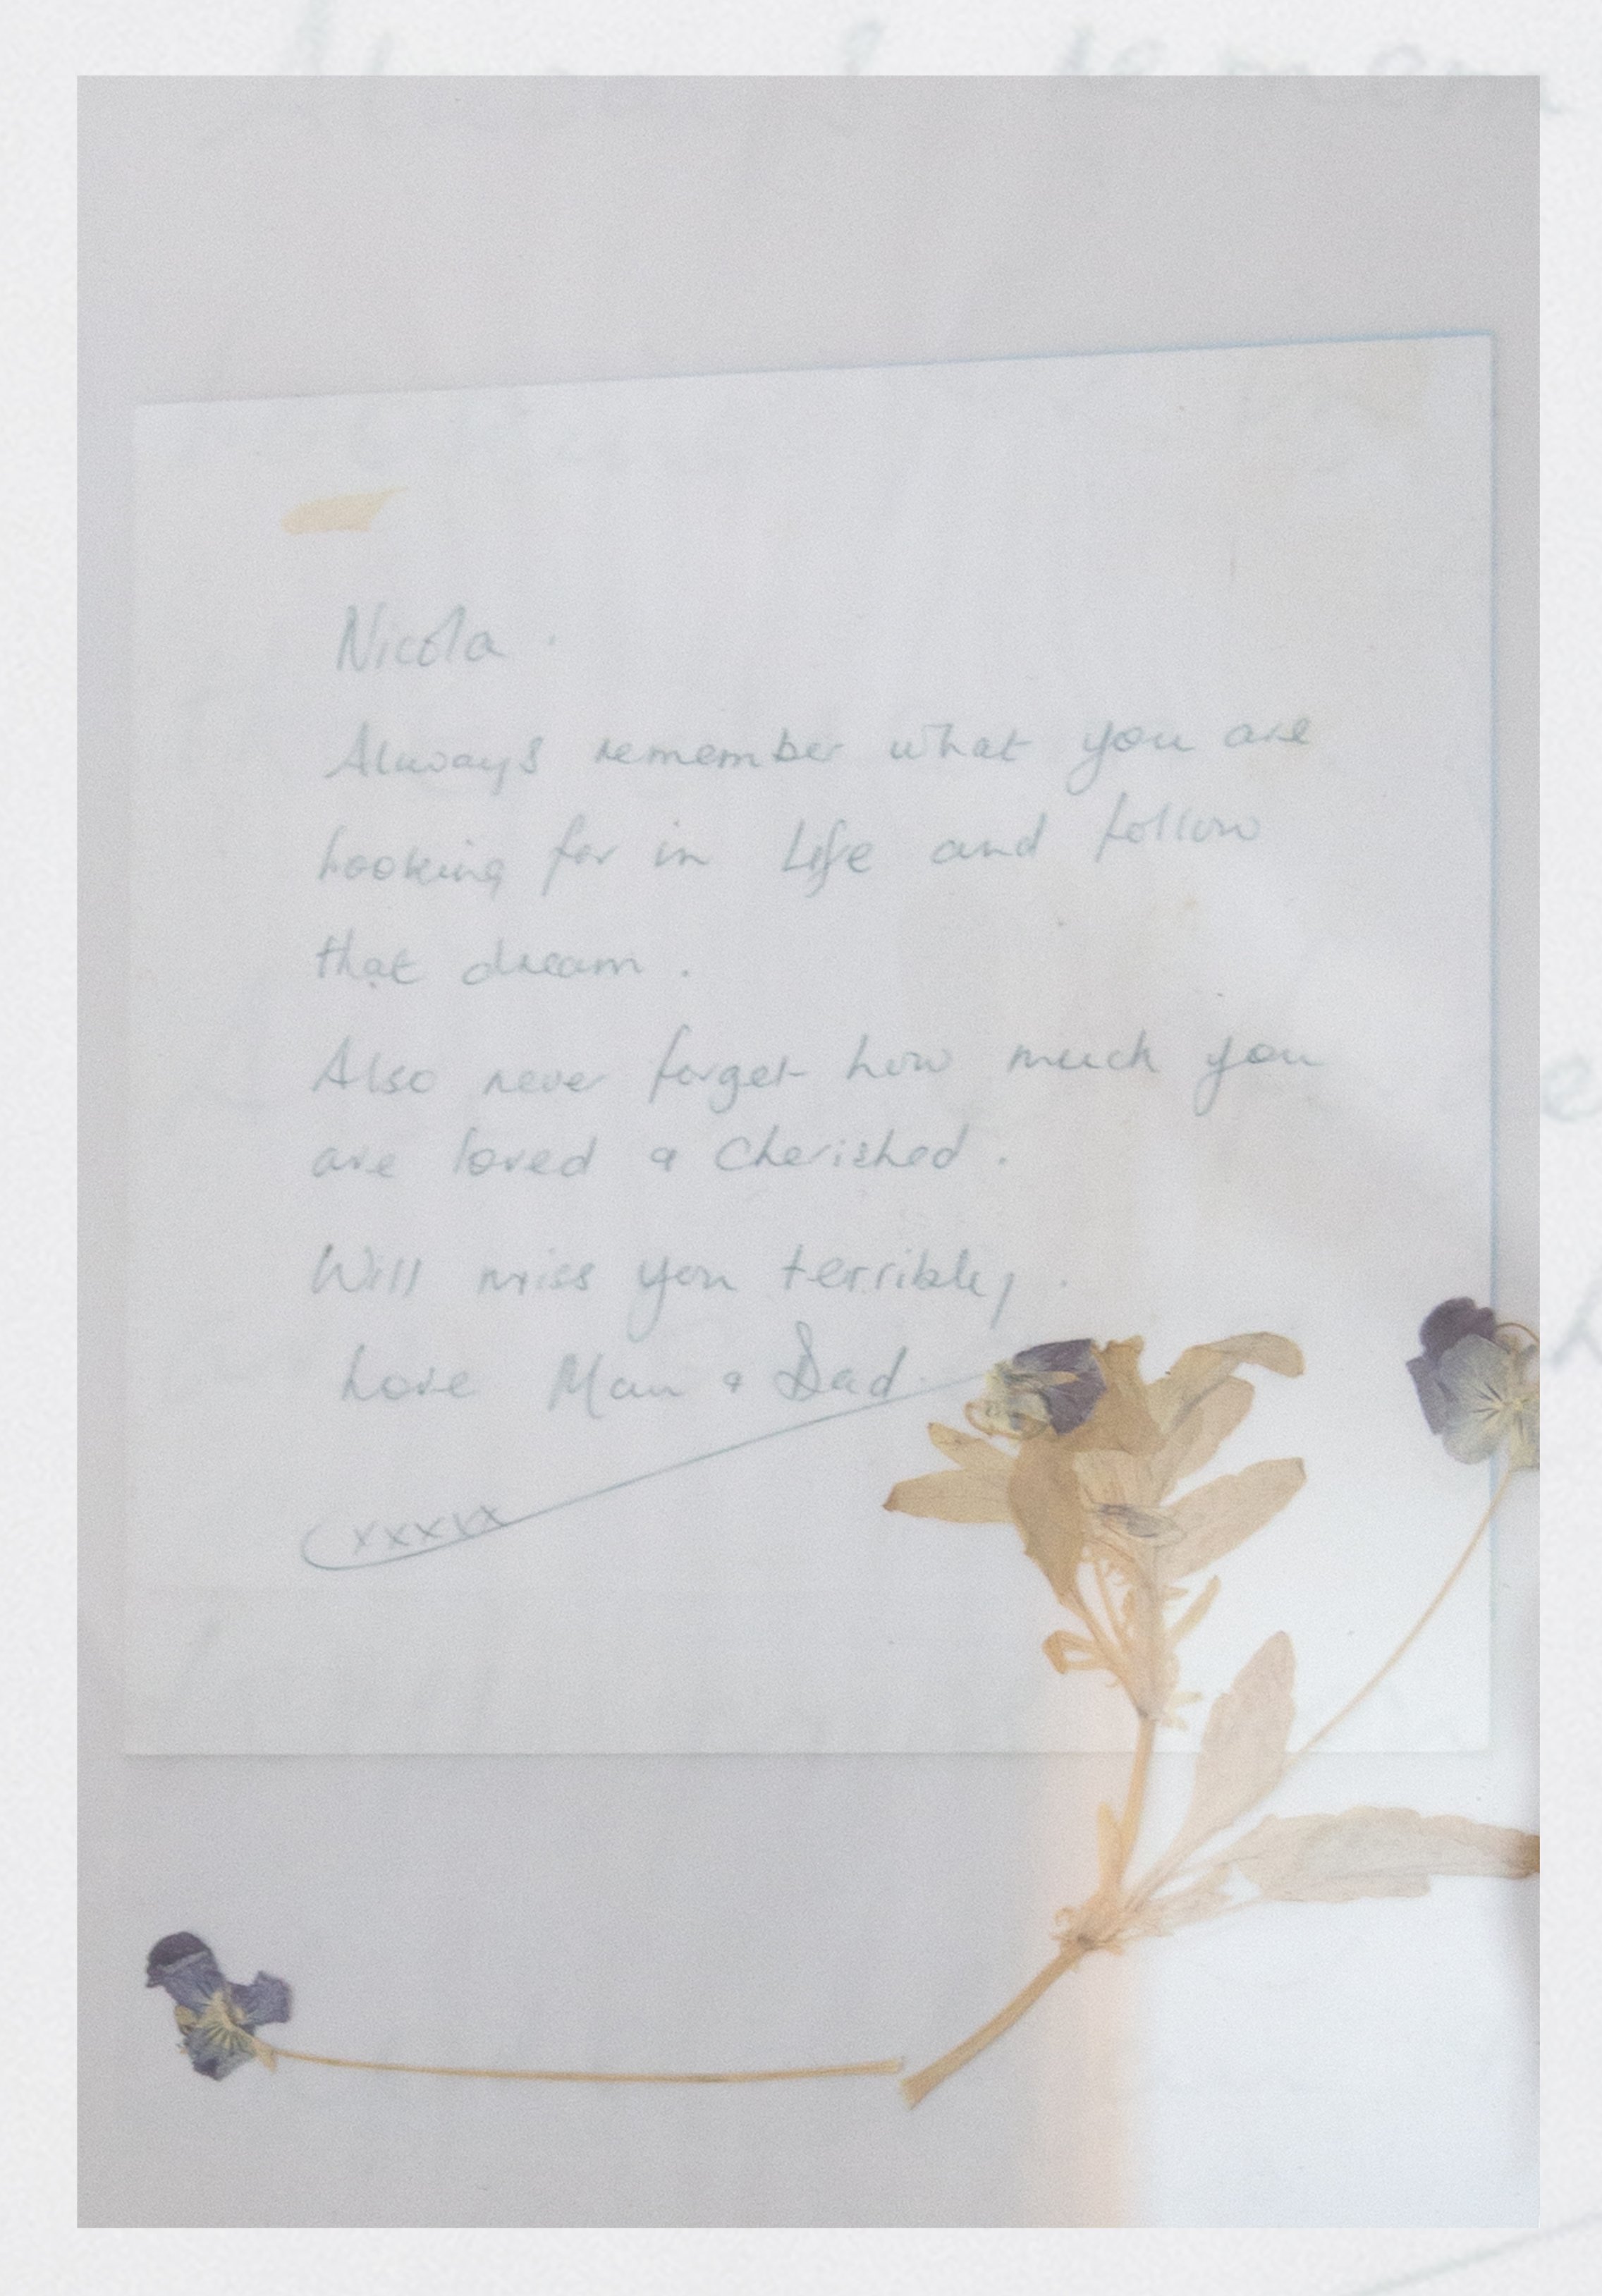 Nicola.
Always remember what you are
Looking for in Life and follow
that dream.
Also never forget how much you
are loved & Cherished.
Will miss you terribly.
Love Mam & Dad.
xxxxx